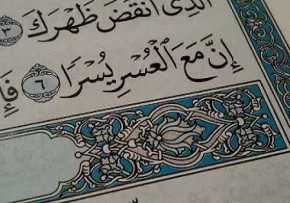 الَّذِي أَنقَضَ ظَهْرَكَ ٣
إِنَّ مَعَ الْعُسْرِ يُسْرًا ٦